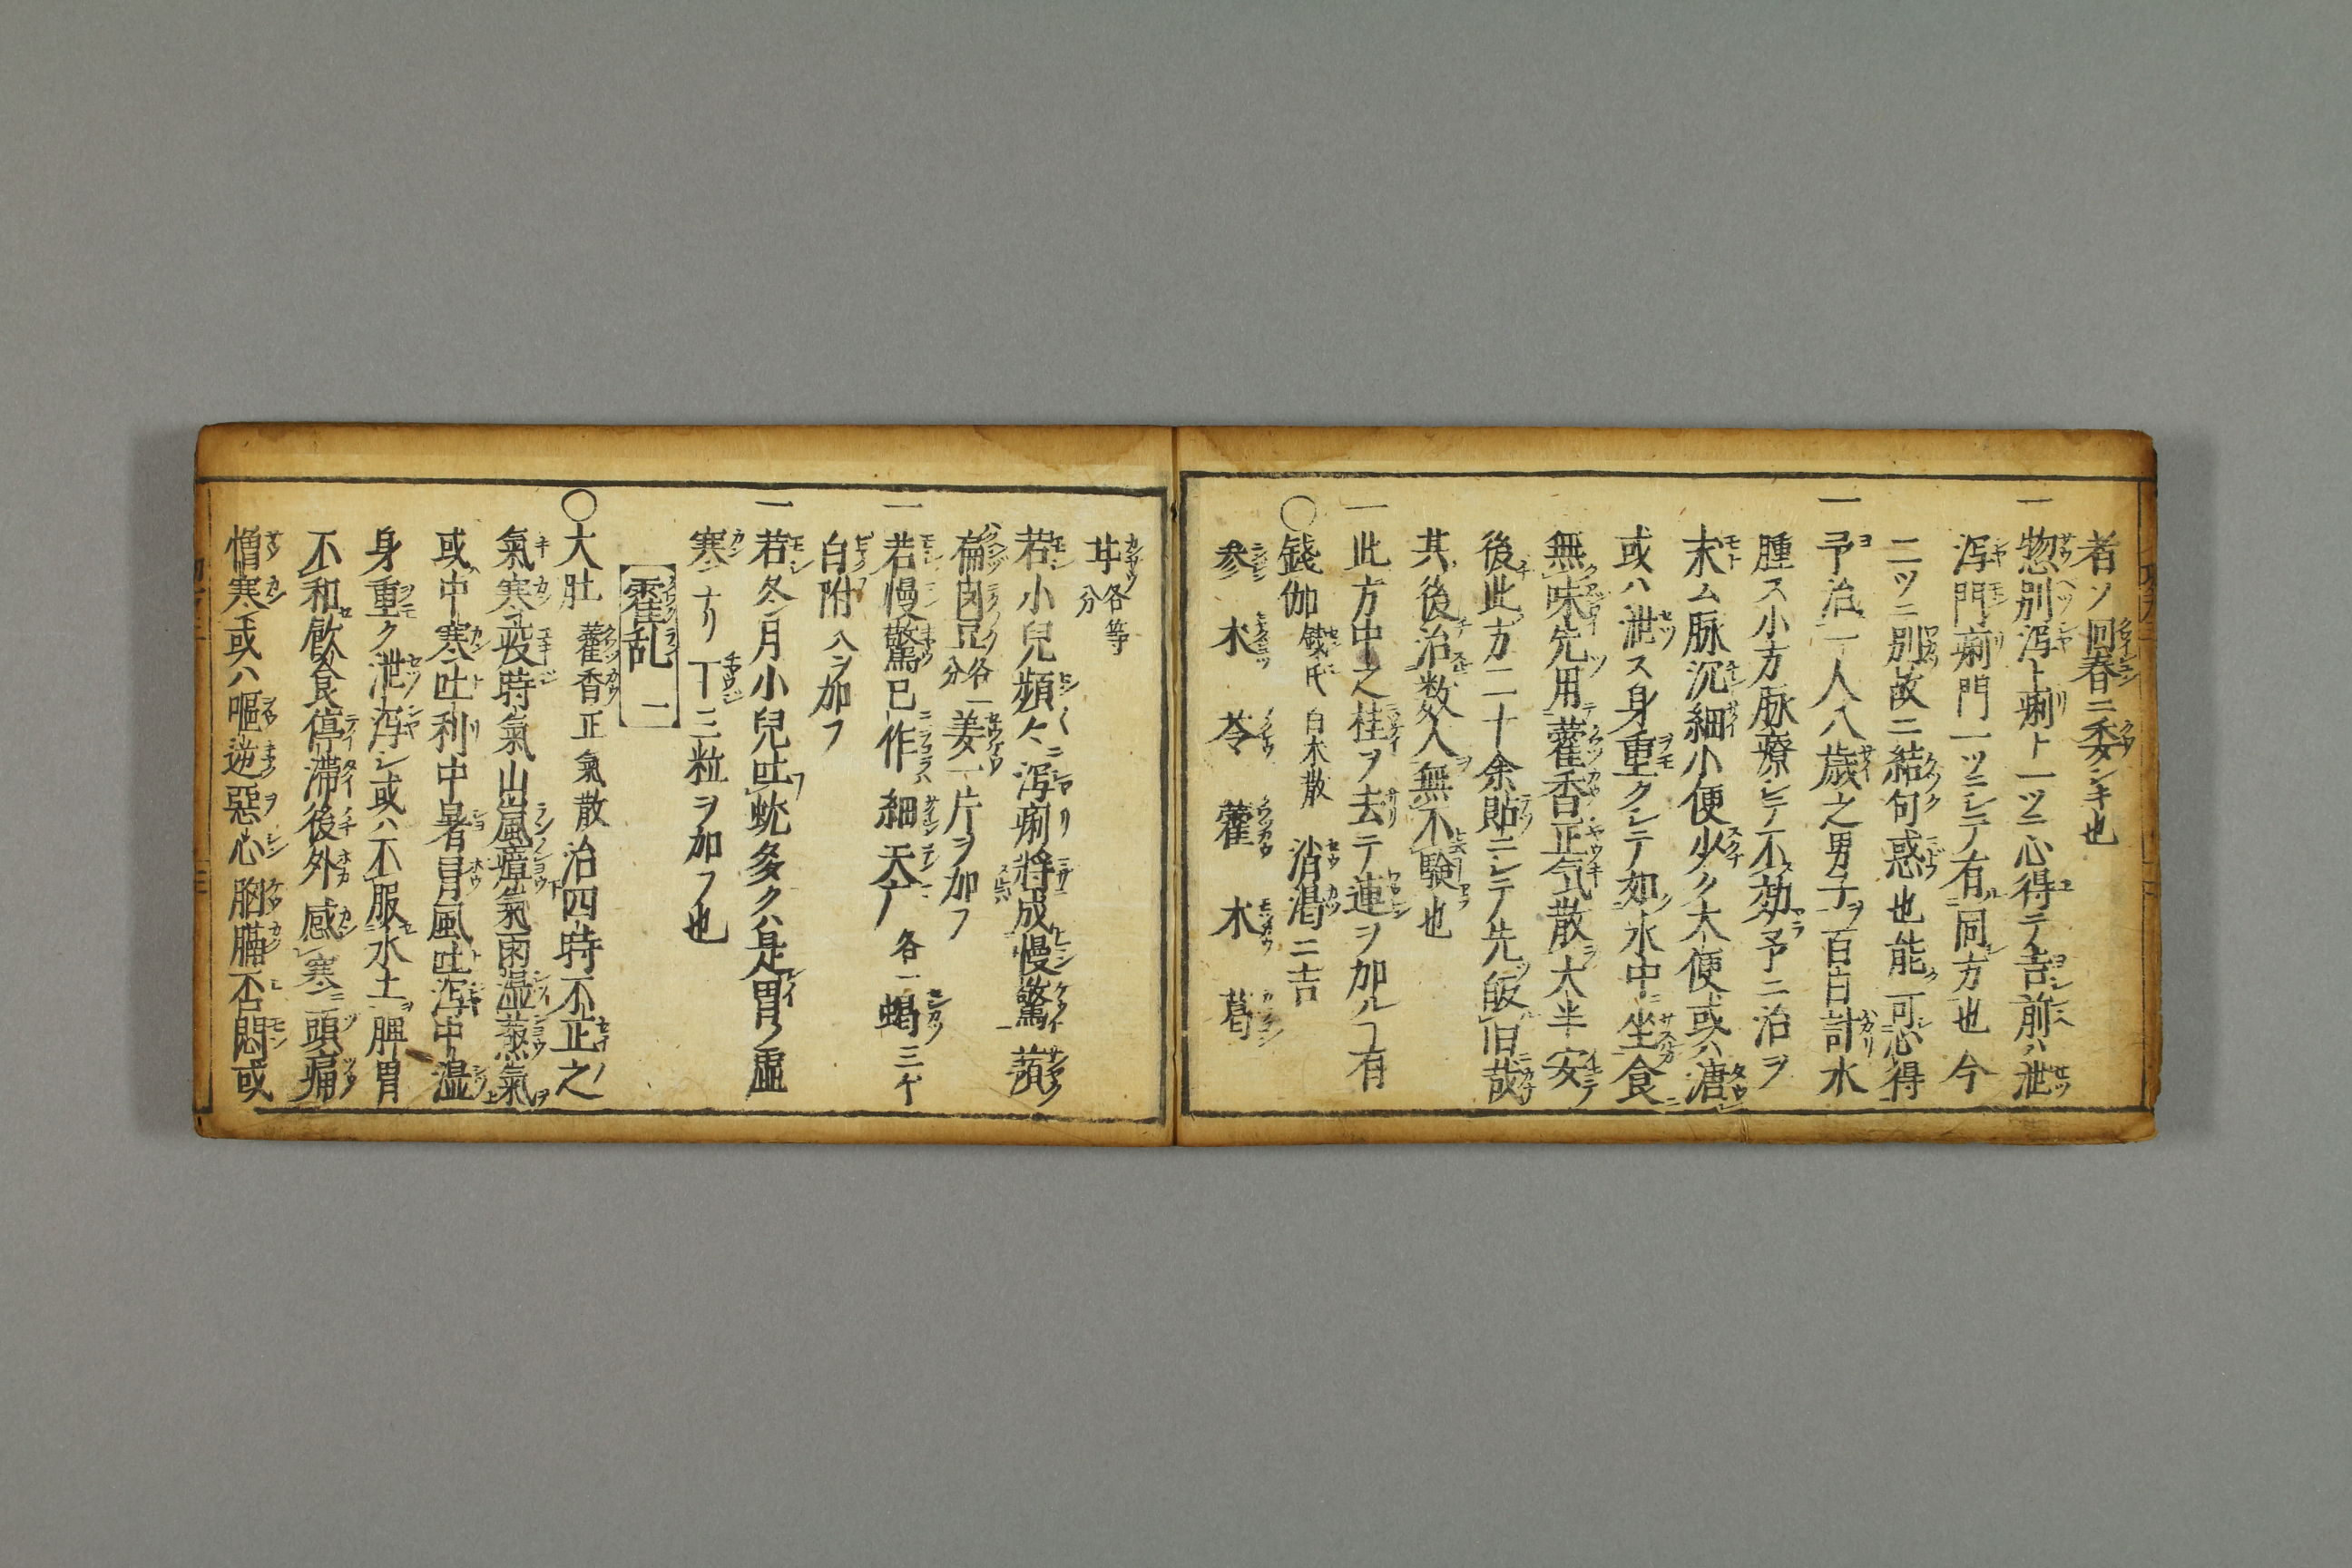 者ソ回春ニ委シキ也
一惣別泻ト痢ト一ツニ心得テ吉前ハ泄
泻門痢門一ツニシテ有同方也今
二ツニ別故ニ結句惑也能可心得
一予治一人八歳之男子ヲ百日計水
腫ス小方脉療シテ不効予ニ治ヲ
末ム脉沉細小便少ク大便或ハ溏
或ハ泄ス身重クシテ如水中坐食
無味先用藿香正気散大半安
後此方二十余貼ニシテ先皈旧哉
其後治数人無不験也
一此方中之桂ヲ去テ連ヲ加ルヿ有
○錢伽 錢氏白朮散 消渇ニ吉
参 朮 苓 藿 木 葛
甘各等分
若小兒頻々ニ泻痢将成慢驚
𦾔各一分姜一片ヲ加フ
一若慢驚已作細天广各一蝎三ケ
白附八ヲ加フ
一若冬月小兒吐蚘多クハ是胃虚
寒ナリ丁三粒ヲ加フ也
霍乱 二
○大肚 藿香正氣散 治四時不正之
氣寒疫時氣山嵐瘴氣雨湿蒸氣
或中寒吐利中暑冒風吐泻中湿
身重ク泄泻シ或ハ不服水土脾胃
不和飲食停滞後外感寒頭痛
憎寒或ハ嘔逆惡心胸膈否悶或